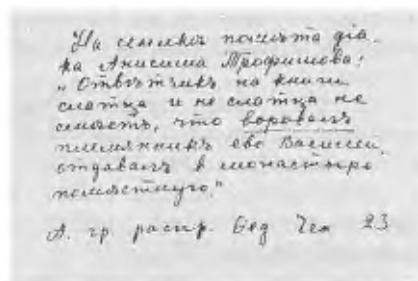 На семъ помѣта діа-
ка Анисима Трофимова:
„Отвѣтчикъ на книги
слатца и не слатца не
смѣетъ, что воровалъ
племянникъ ево Василей,
отдавалъ в монастырь
помѣстную."
А. гр. распр. Вед 23